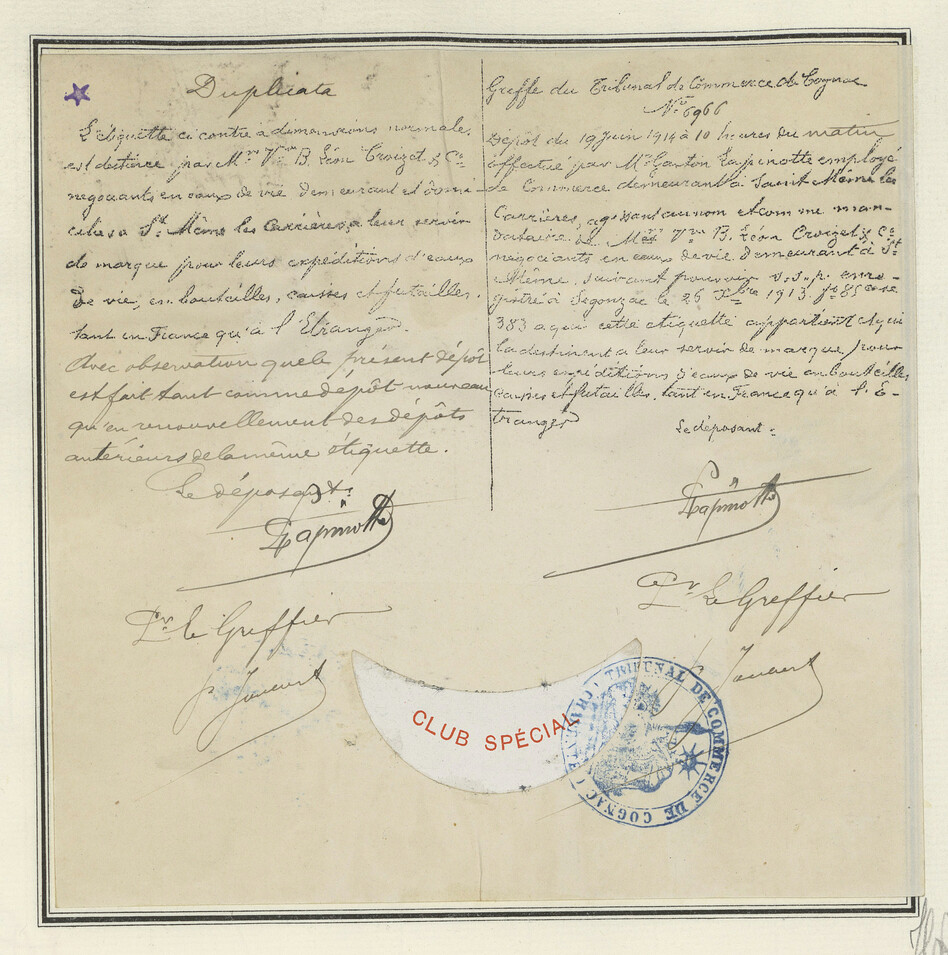 Duplicata
L'étiquette ci contre à dimensions normales,
est destinée par Mrs Vve B. Léon Croizet & Cie
négociants en eaux de vie demeurant et domi-
ciliés à St Même les Carrières, à leur servir
de marque pour leurs expéditions d'eaux
de vie, en bouteilles, caisses et futailles.
tant en France qu'à l'Etranger
Avec observation que le présent dépôt
est fait tant comme dépôt nouveau
qu'en renouvellement des dépôts
antérieurs de la même étiquette.
Le déposant:
Lapinotte
Pr le Greffier
Greffe du Tribunal de Commerce de Cognac
No 6966
Dépôt du 19 Juin 1914 à 10 heures du matin
effectué par Mr Gaston Lapinotte employé
de Commerce demeurant à Saint Même les
Carrières, agissant au nom et comme man-
dataire de Mrs Vve B. Léon Croizet & Cie
négociants en eaux de vie demeurant à St
Même, suivant pouvoir s.s.p. enre-
gistré à Segonzac le 26 Xbre 1913. fo 85 case
383 à qui cette étiquette appartient et qui
la destinent à leur servir de marque pour
leurs expéditions d'eaux de vie en bouteilles
caisses et futailles, tant en France qu'à l'E-
tranger
Le déposant:
Lapinotte
Pr Le Greffier
CLUB SPÉCIAL
TRIBUNAL DE COMMERCE DE COGNAC